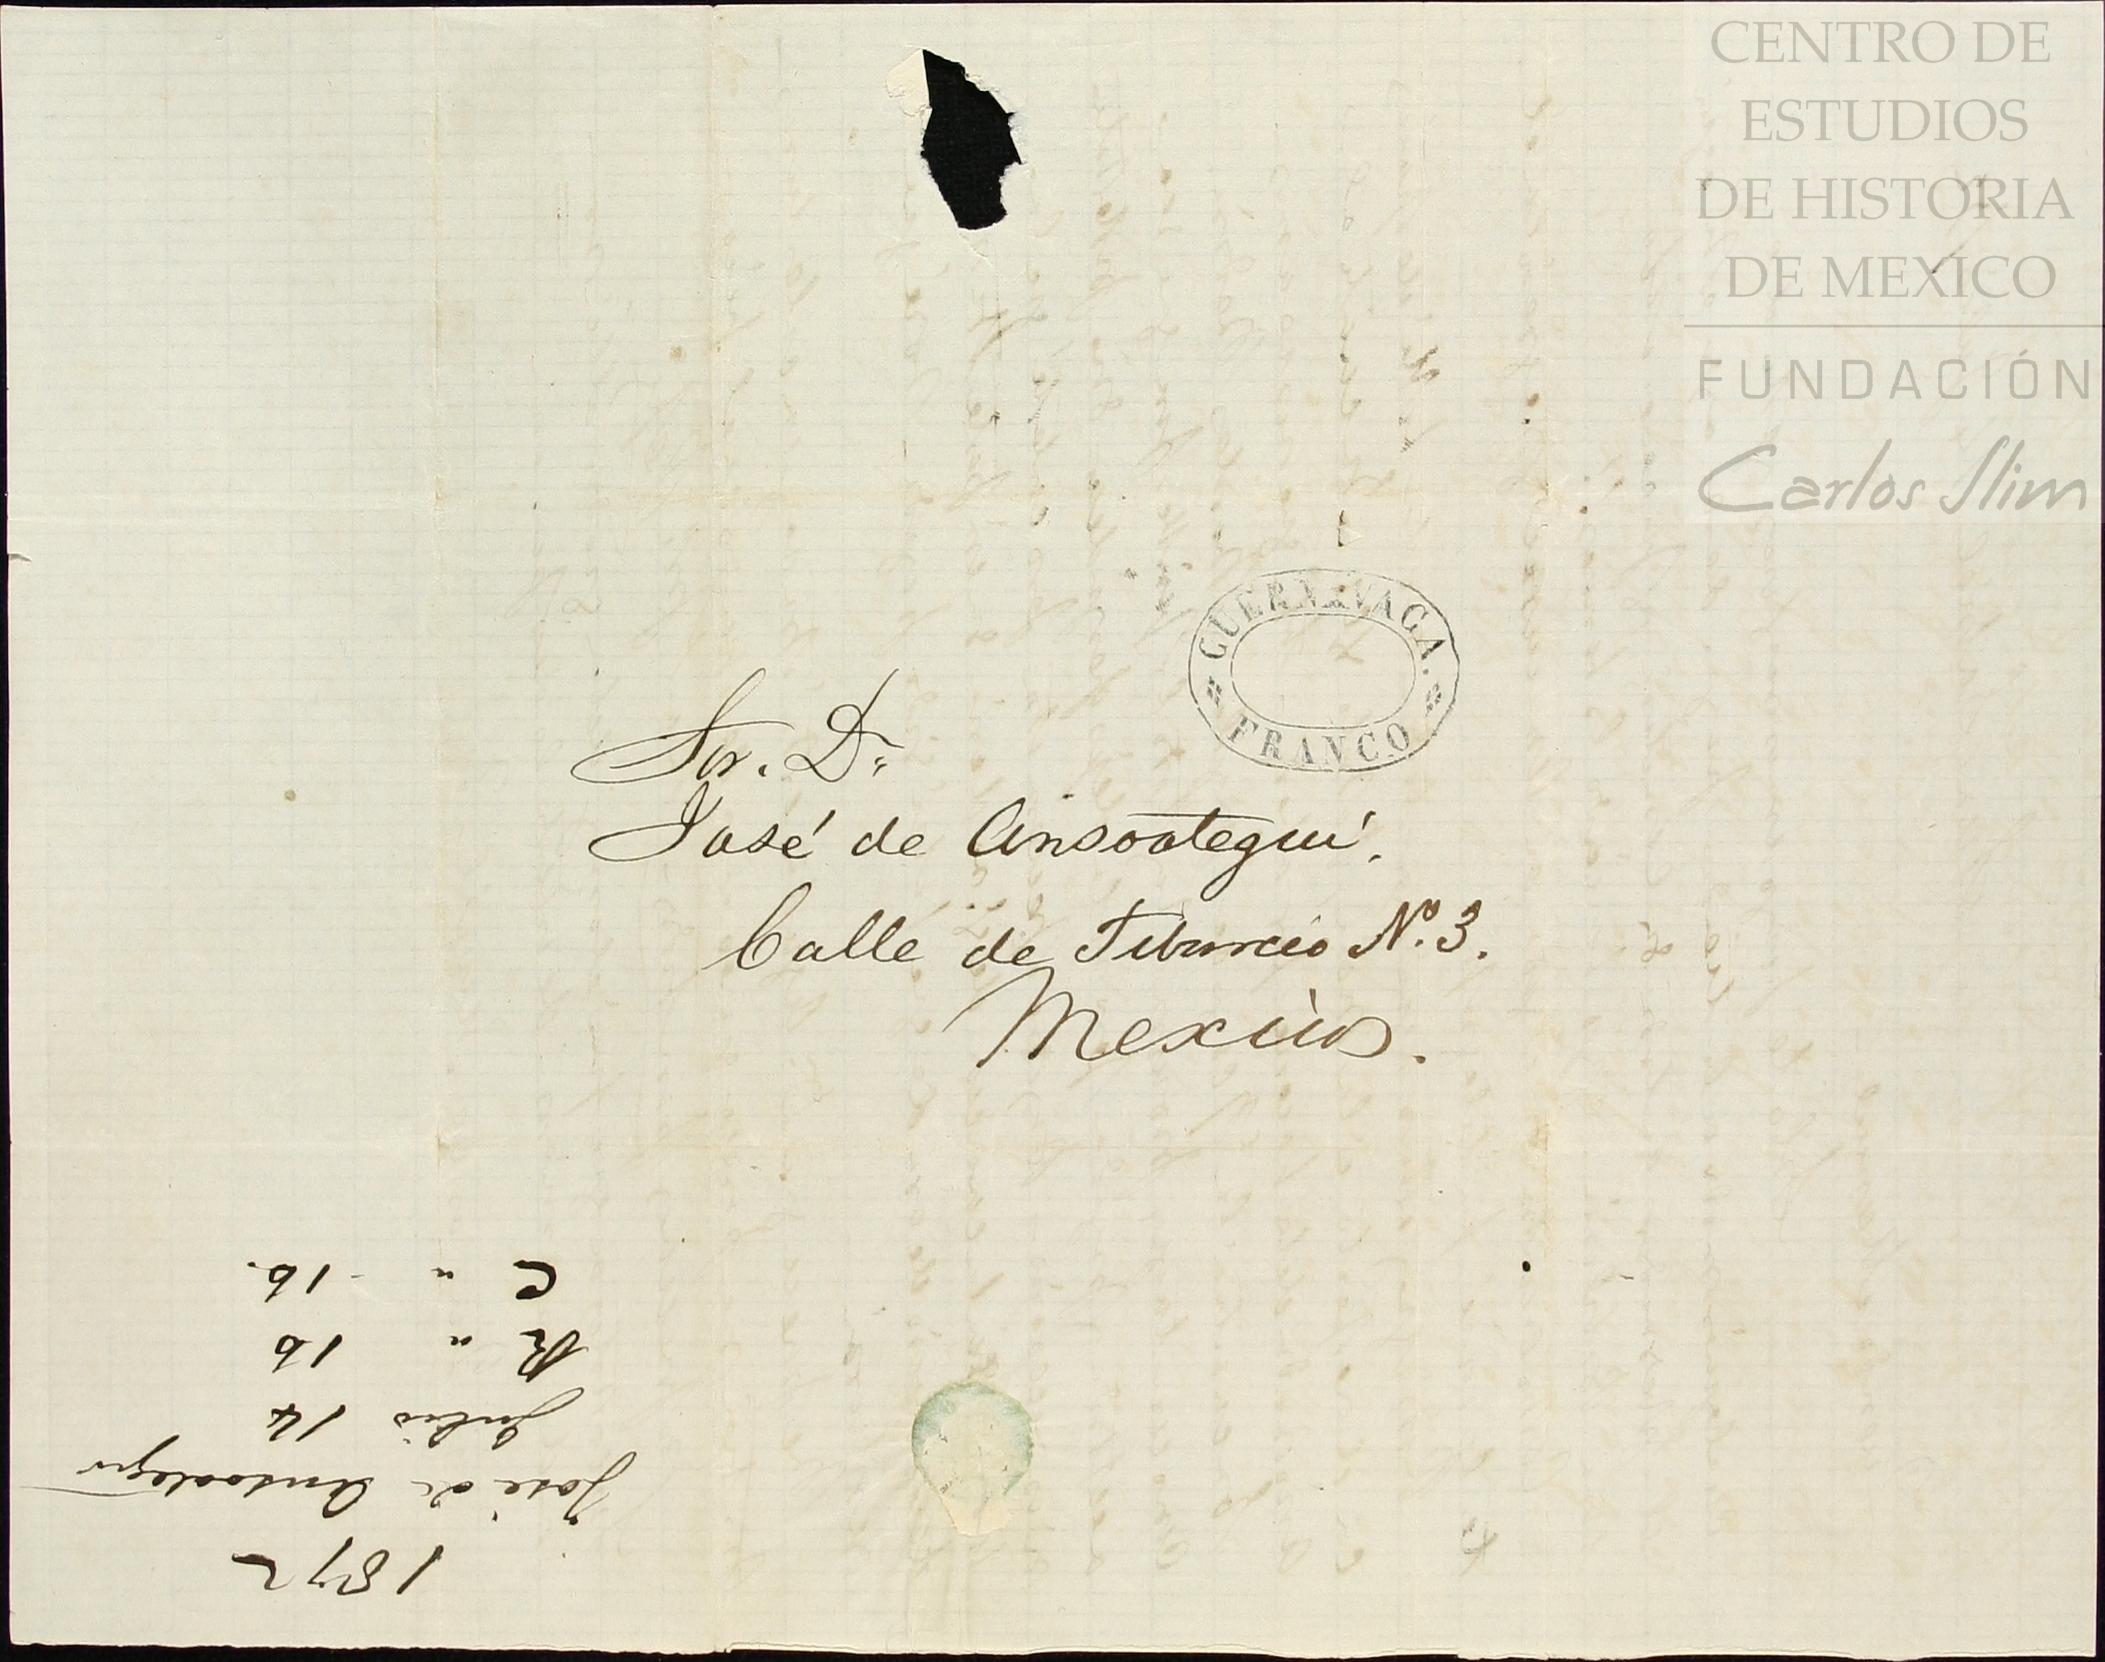 CENTRO DE
ESTUDIOS
DE HISTORIA
DE MEXICO
FUNDACIÓN
Carlos Slim
CUERNAVACA.
FRANCO
Sor. Dn.
José de Ansoategui.
Calle de Tiburcio No. 3.
Mexico.
1872
José de Ansoategui
Julio 14
R " 16
C " - 16.